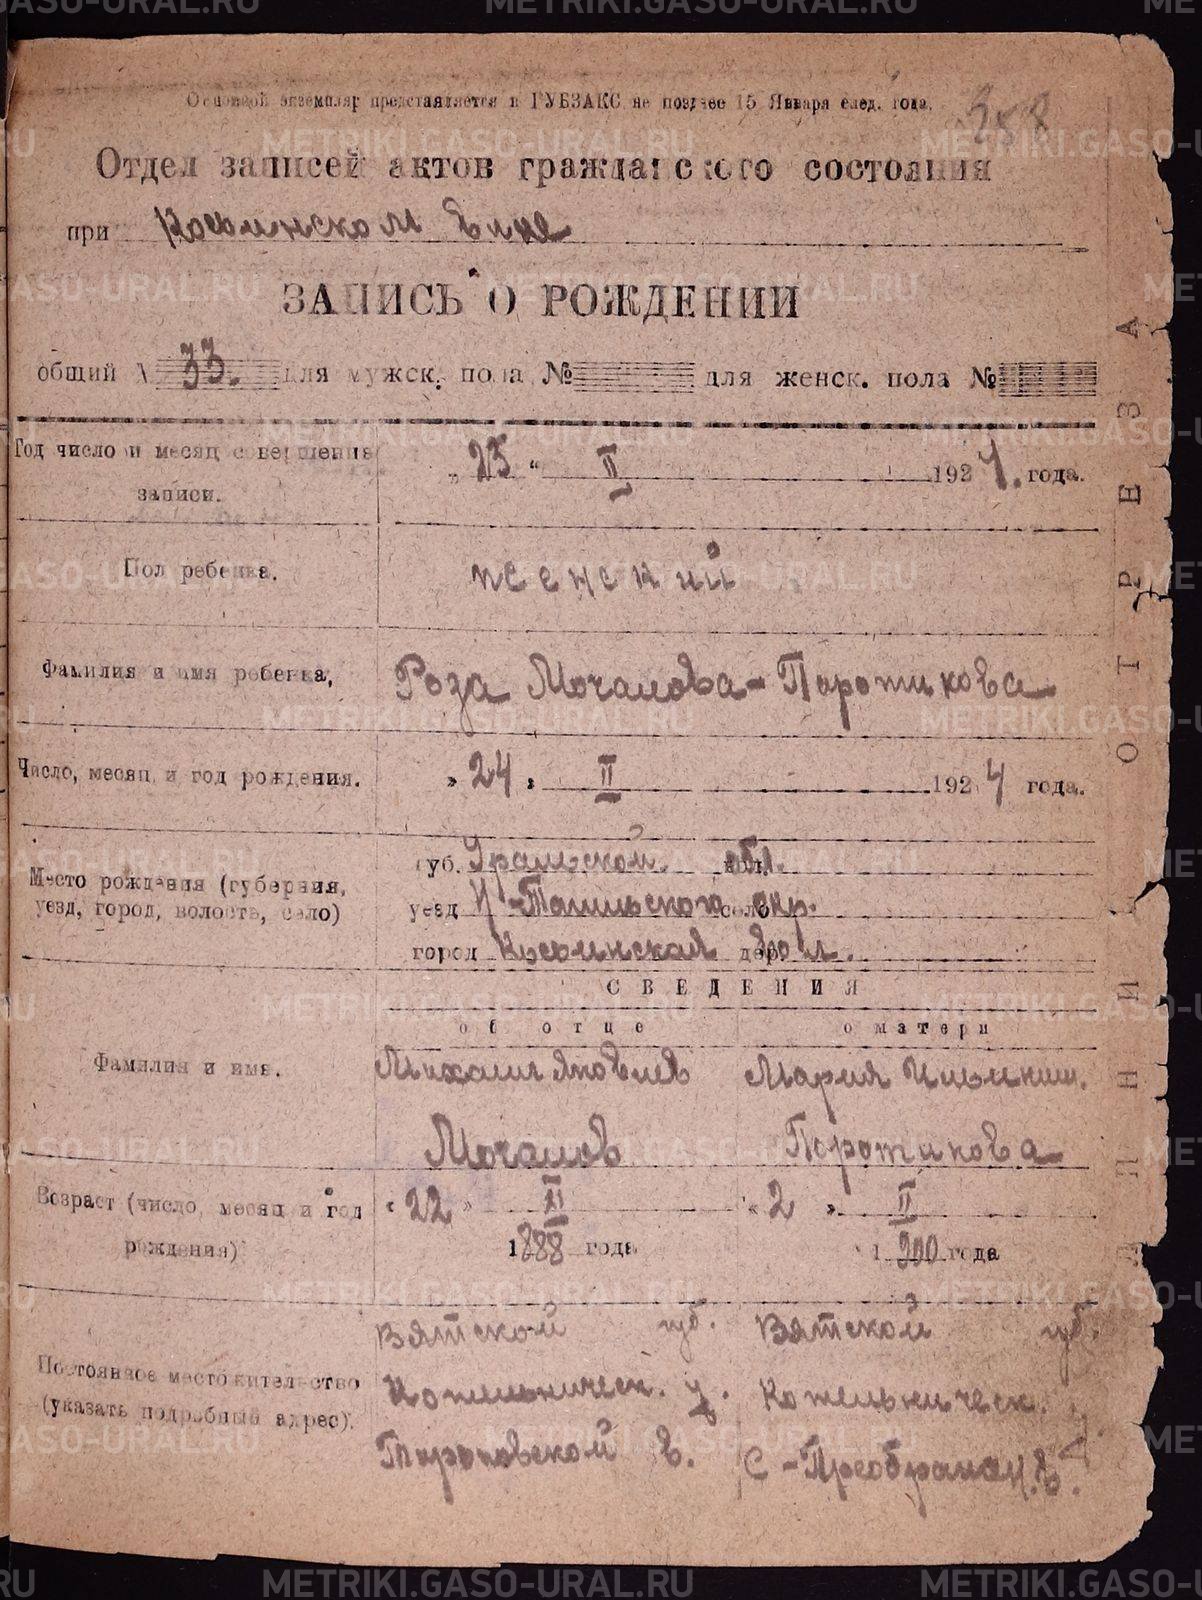 Основной экземпляр представляется в ГУБЗАКС не позднее 15 Января след. года.
358
Отдел записей актов гражданского состояния
при
ЗАПИСЬ О РОЖДЕНИИ
общий № 33. для мужск. пола № для женск. пола №
Год число и месяц совершения записи. „ 25 “ II 1924. года.
Пол ребенка. женский
Фамилия и имя ребенка, Роза Мочалова-Поротикова
Число, месяц и год рождения. „ 24 „ II 1924 года.
Место рождения (губерния, уезд, город, волость, село)
губ. Уральской вол. обл.
уезд Н-Тагильского село окр.
город дер. вол.
СВЕДЕНИЯ
об отце о матери
Фамилия и имя.
Михаил Яковлев Мария
Мочалов Поротикова
Возраст (число, месяц и год рождения)
„ 22 „ XI „ 2 „ II
1888 года 1900 года
Постоянное местожительство (указать подробный адрес).
Вятской губ. Вятской губ.
Котельническ. у. Котельническ.
в. С-Преображен. в.
ЛИНИЯ ОТРЕЗА
METRIKI.GASO-URAL.RU